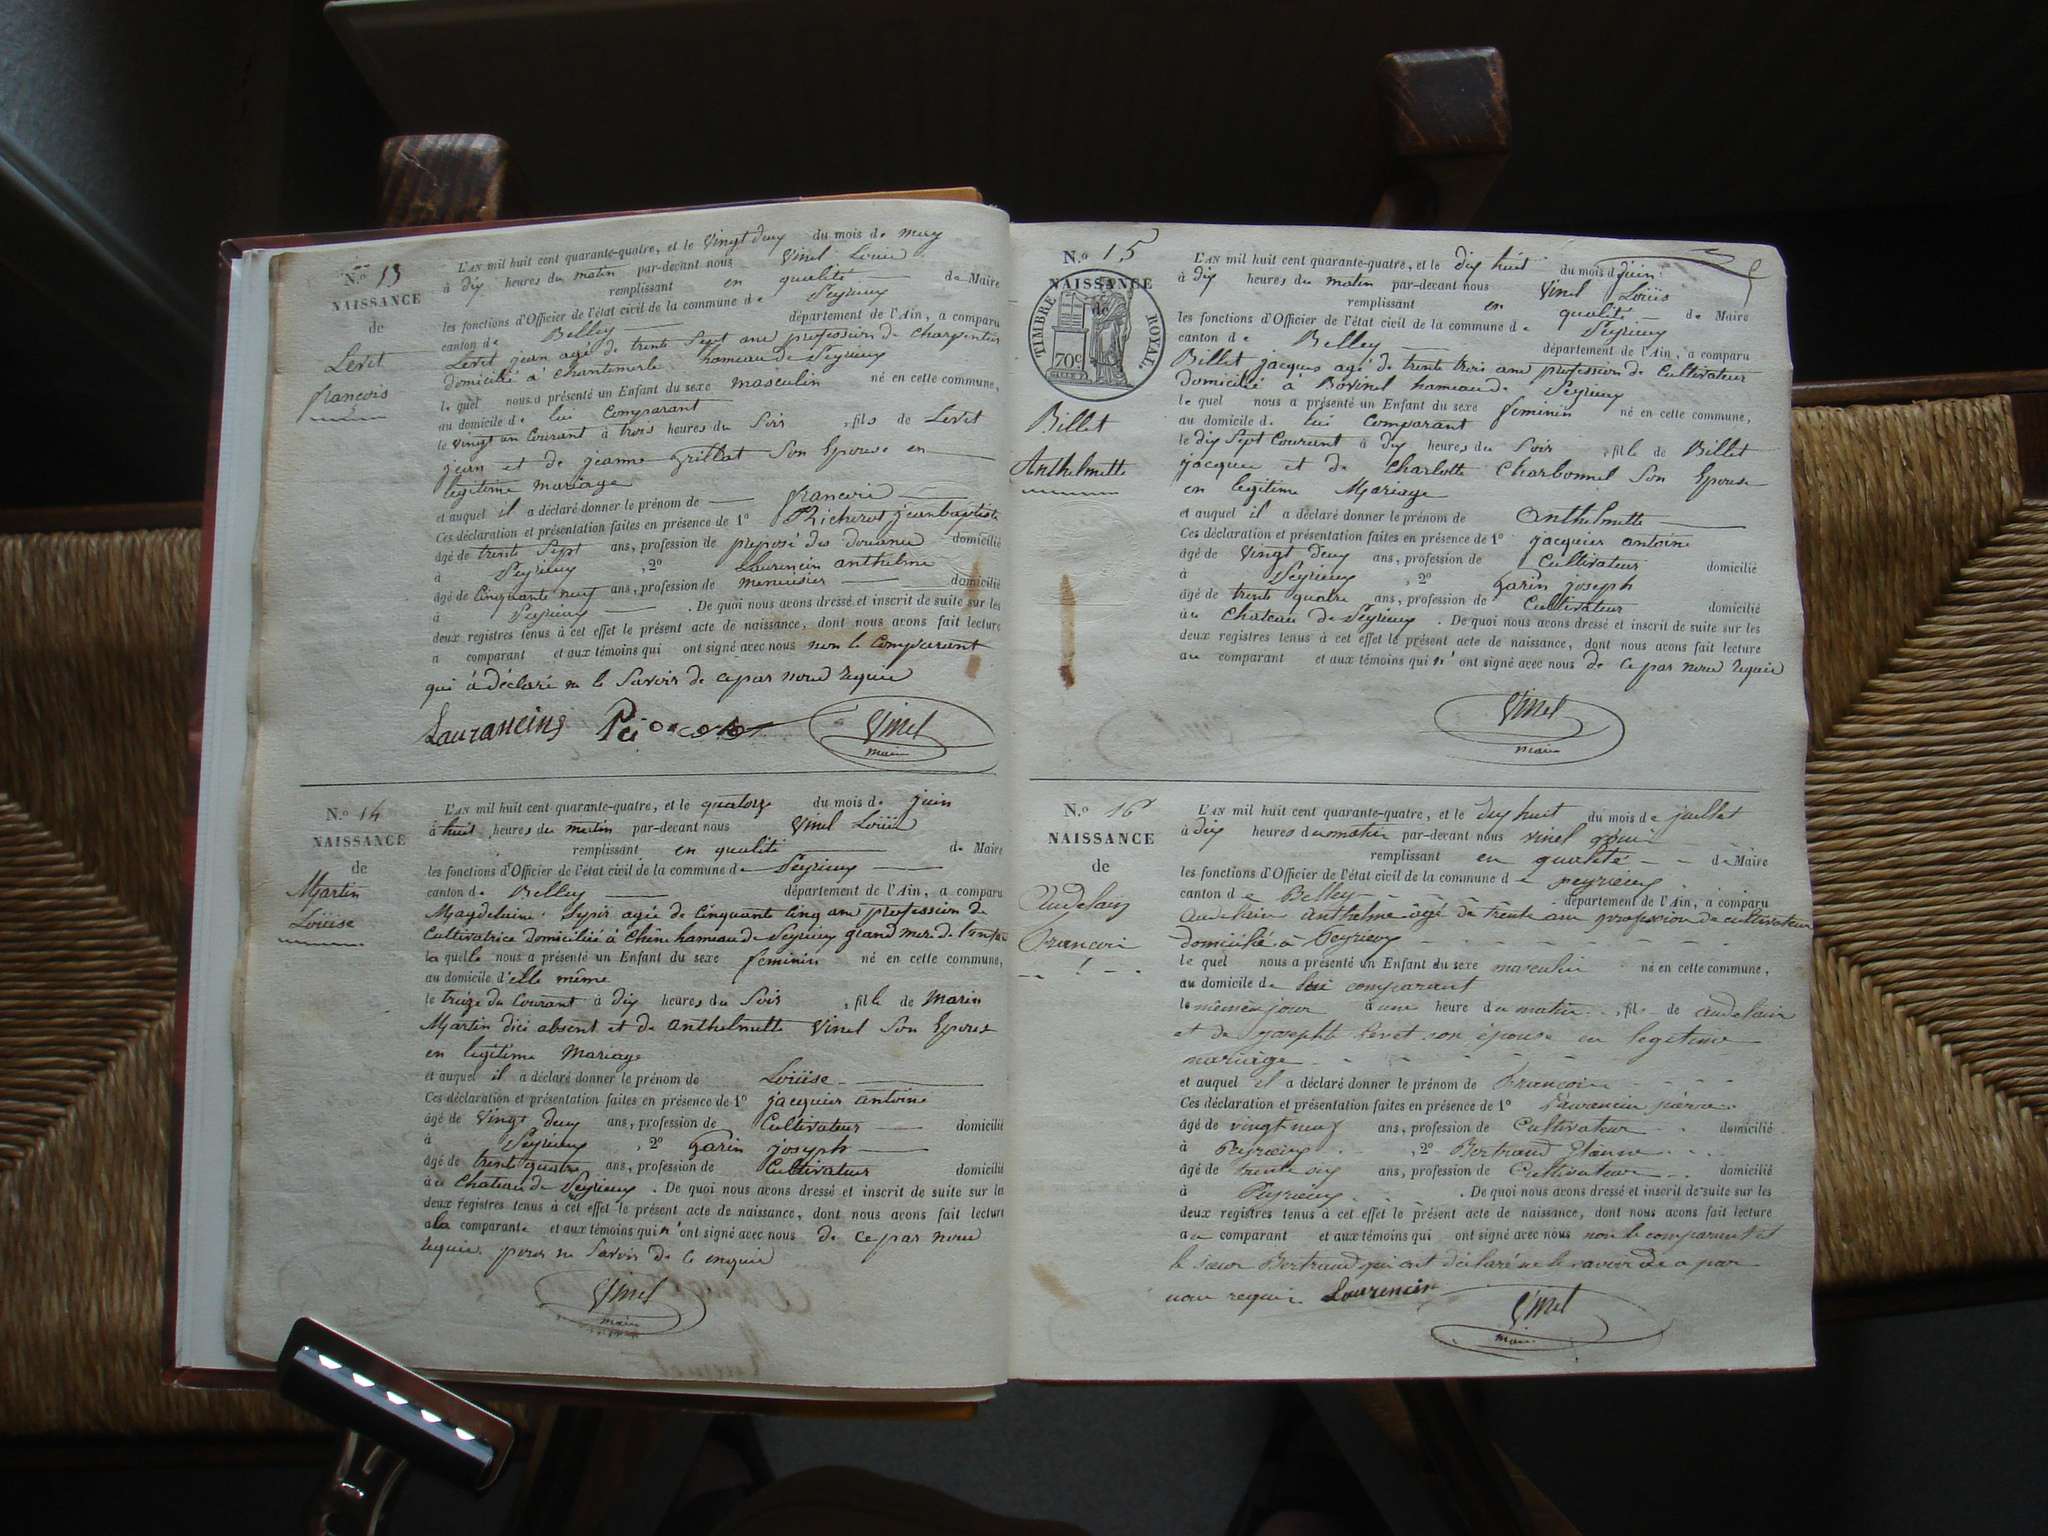 N.º 13
NAISSANCE
de
Levet
françois
L'AN mil huit cent quarante-quatre, et le vingt deux du mois de may
à dix heures du matin par-devant nous Vinel Louis
remplissant en qualité de Maire
les fonctions d'Officier de l'état civil de la commune de Peyrieux
canton de Belley département de l'Ain, a comparu
Levet jean agé de trente Sept ans profession de charpentier
domicilié à Chantemerle hameau de Peyrieux
le quel nous a présenté un Enfant du sexe masculin né en cette commune,
au domicile de lui Comparant
le vingt un Courant à trois heures du Soir , fils de Levet
jean et de jeanne Grillat Son Epouse en
legitime mariage
et auquel il a déclaré donner le prénom de françois
Ces déclaration et présentation faites en présence de 1º jean baptiste
âgé de trente Sept ans, profession de préposé des douanes domicilié
à Peyrieux , 2º Laurencin anthelme
âgé de Cinquante neuf ans, profession de menuisier domicilié
à Peyrieux . De quoi nous avons dressé et inscrit de suite sur les
deux registres tenus à cet effet le présent acte de naissance, dont nous avons fait lecture
a comparant et aux témoins qui ont signé avec nous non le Comparant
qui à déclaré ne le Savoir de ce par nous requis
Laurancins Vinel
maire
N.º 14
NAISSANCE
de
Martin
Loüise
L'AN mil huit cent quarante-quatre, et le quatorze du mois de juin
à huit heures du matin par-devant nous Vinel Loüis
remplissant en qualité de Maire
les fonctions d'Officier de l'état civil de la commune de Peyrieux
canton de Belley département de l'Ain, a comparu
Magdelaine agée de Cinquante Cinq ans profession de
Cultivatrice domiciliée à Chêne hameau de Peyrieux grand mere de l'enfant
la quelle nous a présenté un Enfant du sexe feminin né en cette commune,
au domicile d'elle même
le treize du Courant à dix heures du Soir , fille de Marin
Martin dici absent et de anthelmette Vinel Son Epouse
en legitime Mariage
et auquel il a déclaré donner le prénom de Loüise
Ces déclaration et présentation faites en présence de 1º jacquier antoine
âgé de Vingt deux ans, profession de Cultivateur domicilié
à Peyrieux , 2º Garin joseph
âgé de trente quatre ans, profession de Cultivateur domicilié
au Chateau de Peyrieux . De quoi nous avons dressé et inscrit de suite sur les
deux registres tenus à cet effet le présent acte de naissance, dont nous avons fait lecture
a la comparante et aux témoins qui n'ont signé avec nous de ce par nous
requis pour ne Savoir de ce enquis
Vinel
maire
N.º 15
NAISSANCE
de
TIMBRE ROYAL
70c
Billet
Anthelmette
L'AN mil huit cent quarante-quatre, et le dix huit du mois de juin
à dix heures du matin par-devant nous Vinel Loüis
remplissant en qualité de Maire
les fonctions d'Officier de l'état civil de la commune de Peyrieux
canton de Belley département de l'Ain, a comparu
Billet jacques agé de trente trois ans profession de Cultivateur
domicilié à Bovinel hameau de Peyrieux
le quel nous a présenté un Enfant du sexe feminin né en cette commune,
au domicile de lui Comparant
le dix Sept Courant à dix heures du Soir , fille de Billet
jacques et de Charlotte Charbonnel Son Epouse
en legitime Mariage
et auquel il a déclaré donner le prénom de Anthelmette
Ces déclaration et présentation faites en présence de 1º jacquier antoine
âgé de Vingt deux ans, profession de Cultivateur domicilié
à Peyrieux , 2º Garin joseph
âgé de trente quatre ans, profession de Cultivateur domicilié
au Chateau de Peyrieux . De quoi nous avons dressé et inscrit de suite sur les
deux registres tenus à cet effet le présent acte de naissance, dont nous avons fait lecture
au comparant et aux témoins qui n'ont signé avec nous de ce par nous requis
Vinel
maire
N.º 16
NAISSANCE
de
Audelain
Francois
L'AN mil huit cent quarante-quatre, et le dix huit du mois de juillet
à dix heures du matin par-devant nous Vinel Louis
remplissant en qualité de Maire
les fonctions d'Officier de l'état civil de la commune de Peyrieux
canton de Belley département de l'Ain, a comparu
Audelain anthelme âgé de trente ans profession de cultivateur
domicilié à Peyrieux
le quel nous a présenté un Enfant du sexe masculin né en cette commune,
au domicile de lui comparant
le même jour à une heure du matin , fils de audelain
et de josephte Levet son épouse en legitime
mariage
et auquel il a déclaré donner le prénom de Francois
Ces déclaration et présentation faites en présence de 1º Laurancin pierre
âgé de vingt neuf ans, profession de Cultivateur domicilié
à Peyrieux , 2º Bertrand
âgé de trente six ans, profession de Cultivateur domicilié
à Peyrieux . De quoi nous avons dressé et inscrit de suite sur les
deux registres tenus à cet effet le présent acte de naissance, dont nous avons fait lecture
au comparant et aux témoins qui ont signé avec nous non le comparant et
le sieur Bertrand qui ont déclaré ne le savoir de ce par
nous requis Laurencin Vinel
maire